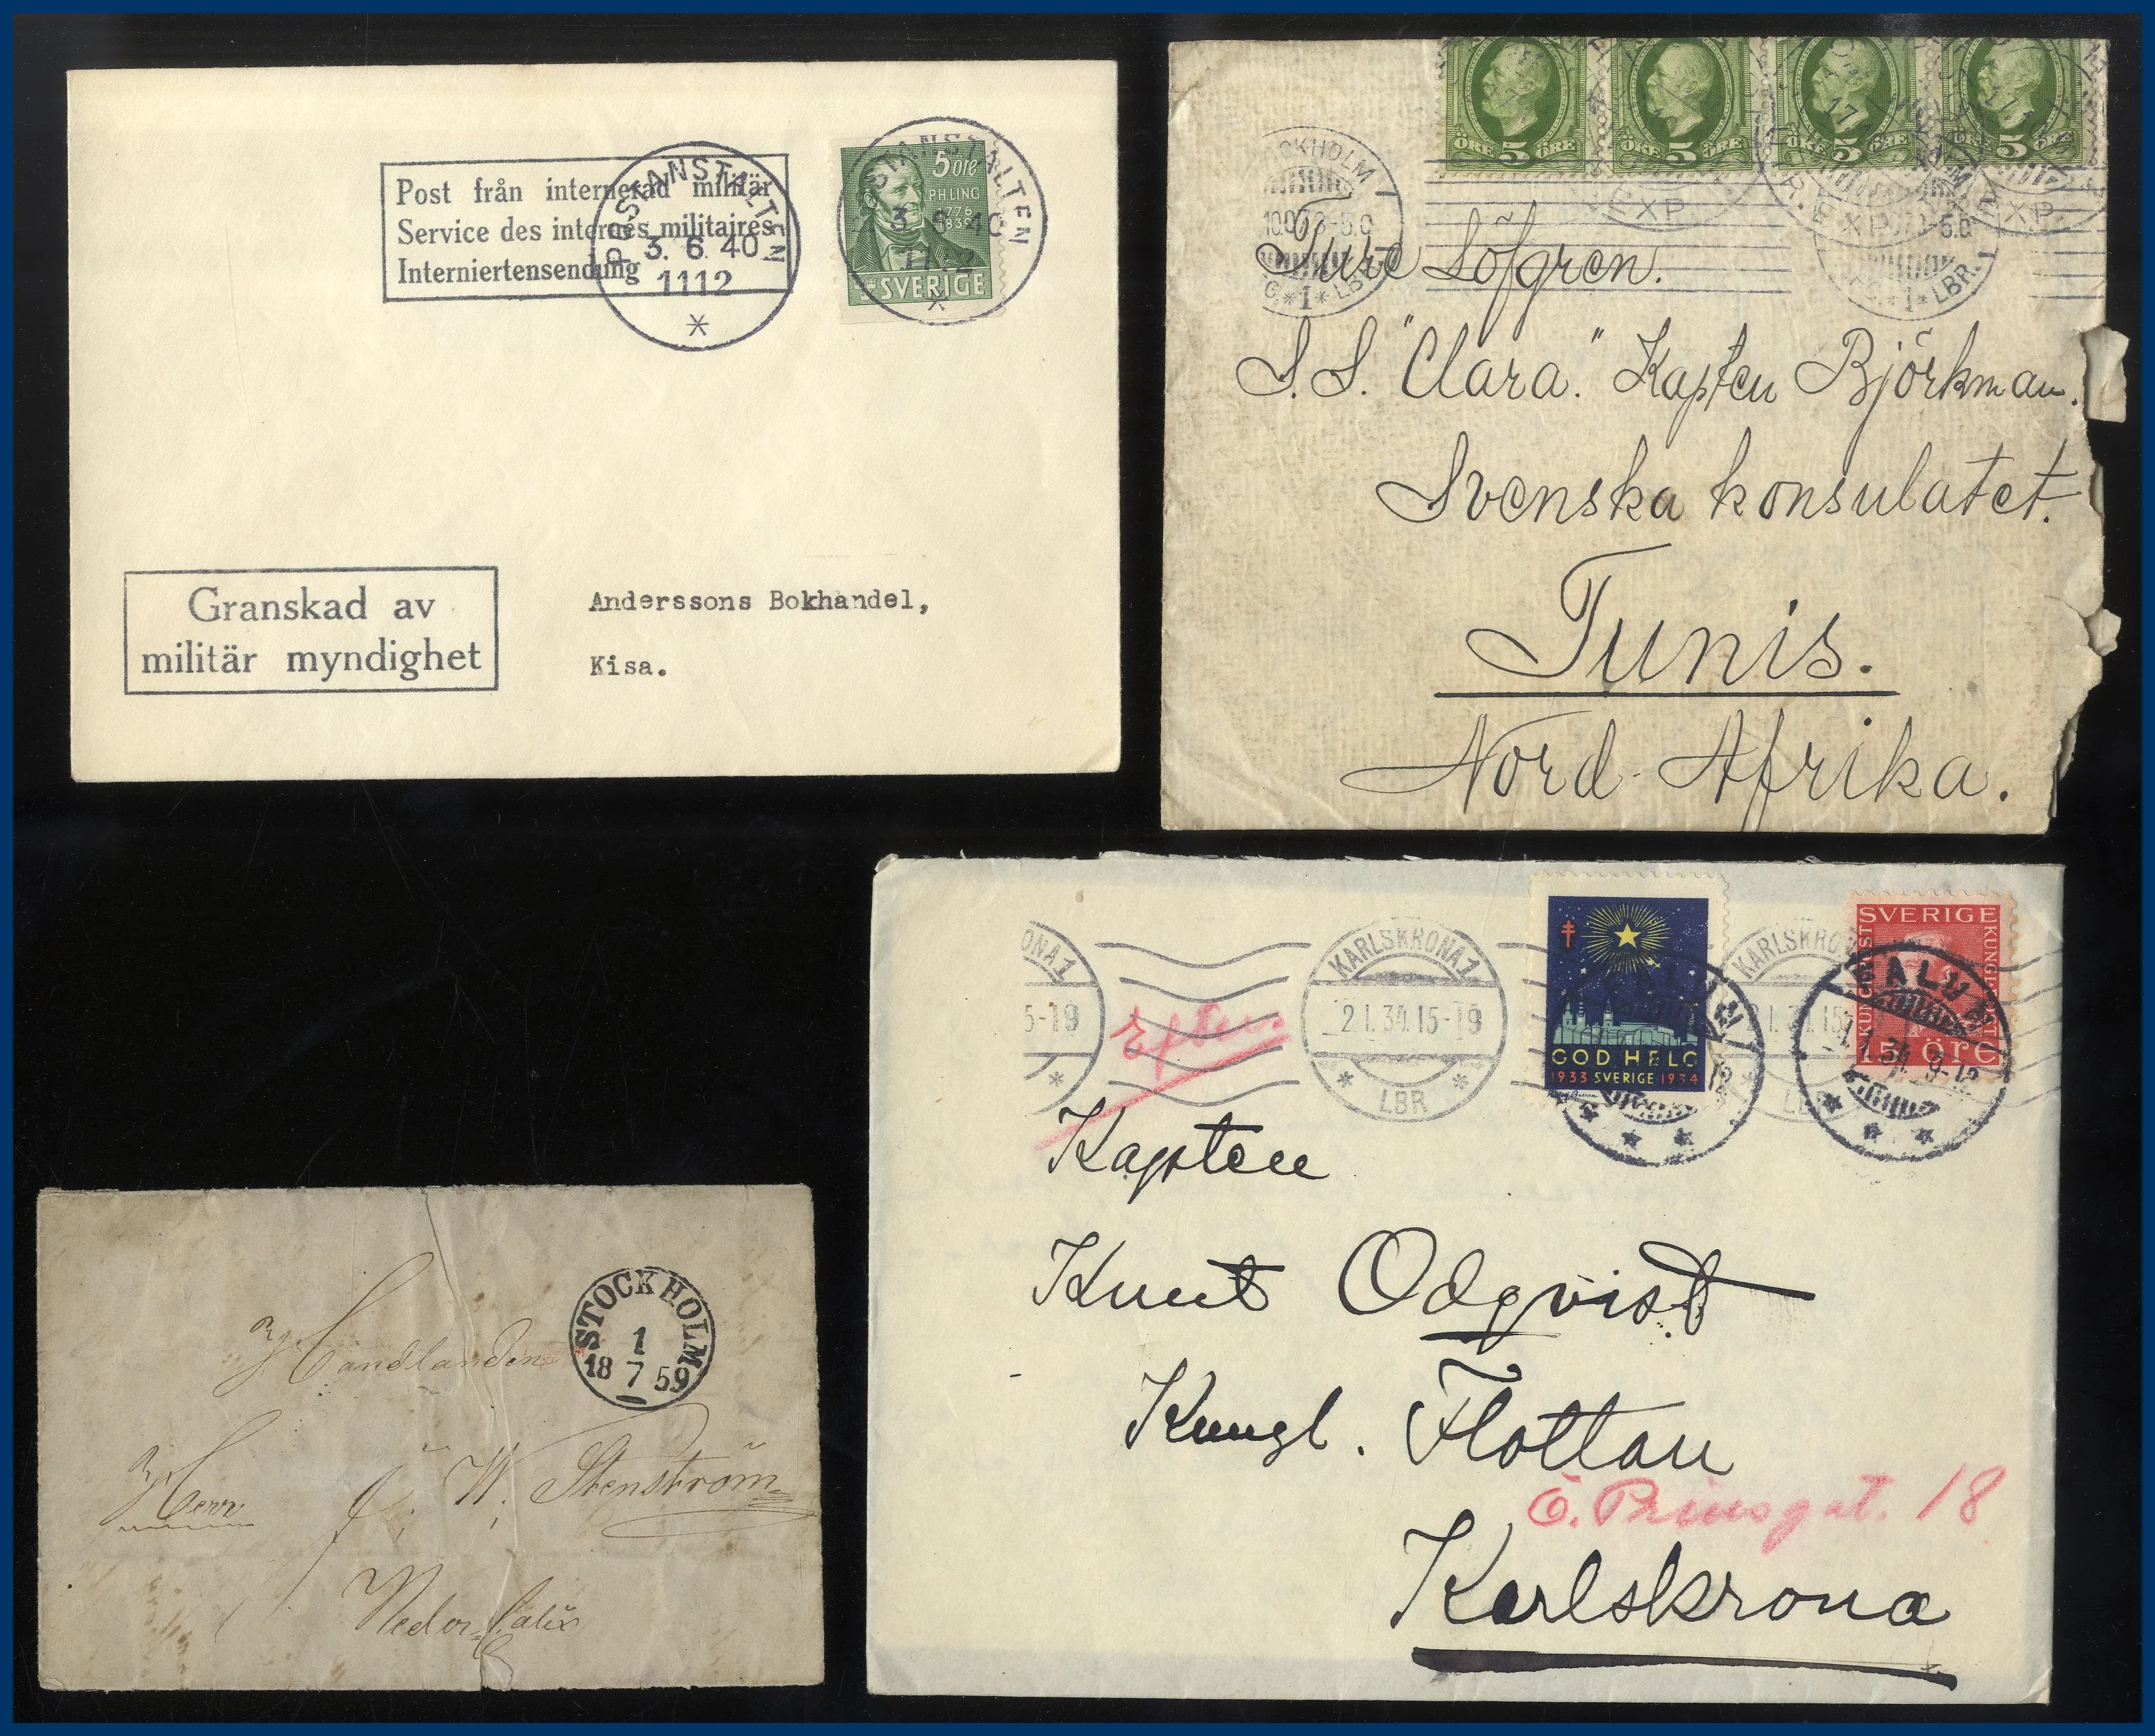 Post från internerad militär
Service des internes militaires
Interniertensendung
POSTANSTALTEN
3. 6. 40
1112
STANSTALTEN
3. 6. 40
5 ÖRE
PH.LING
1776
1839
SVERIGE
Granskad av
militär myndighet
Anderssons Bokhandel,
Kisa.
ÖRE 5 ÖRE
ÖRE 5 ÖRE
ÖRE 5 ÖRE
ÖRE 5 ÖRE
OCKHOLM
1
LBR.
EXP.
17
11
EXP.
XP.
LBR.
Ture Löfgren.
S.S. "Clara." Kapten Björkman.
Svenska konsulatet.
Tunis.
Nord-Afrika.
STOCKHOLM
1
18 7 59
Handlanden
Herr J. W. Stenström
Neder Calix
ONA 1
5-19
KARLSKRONA 1
2 1. 34. 15-19
LBR
Efters.
GOD HELG
1933 SVERIGE 1934
FALUN
KARLSKRO
SVERIGE
15 ÖRE
FALUN
1. 1. 34. 9-12
Kapten
Knut Odqvist
Kungl. Flottan
Ö. Prinsgat. 18
Karlskrona